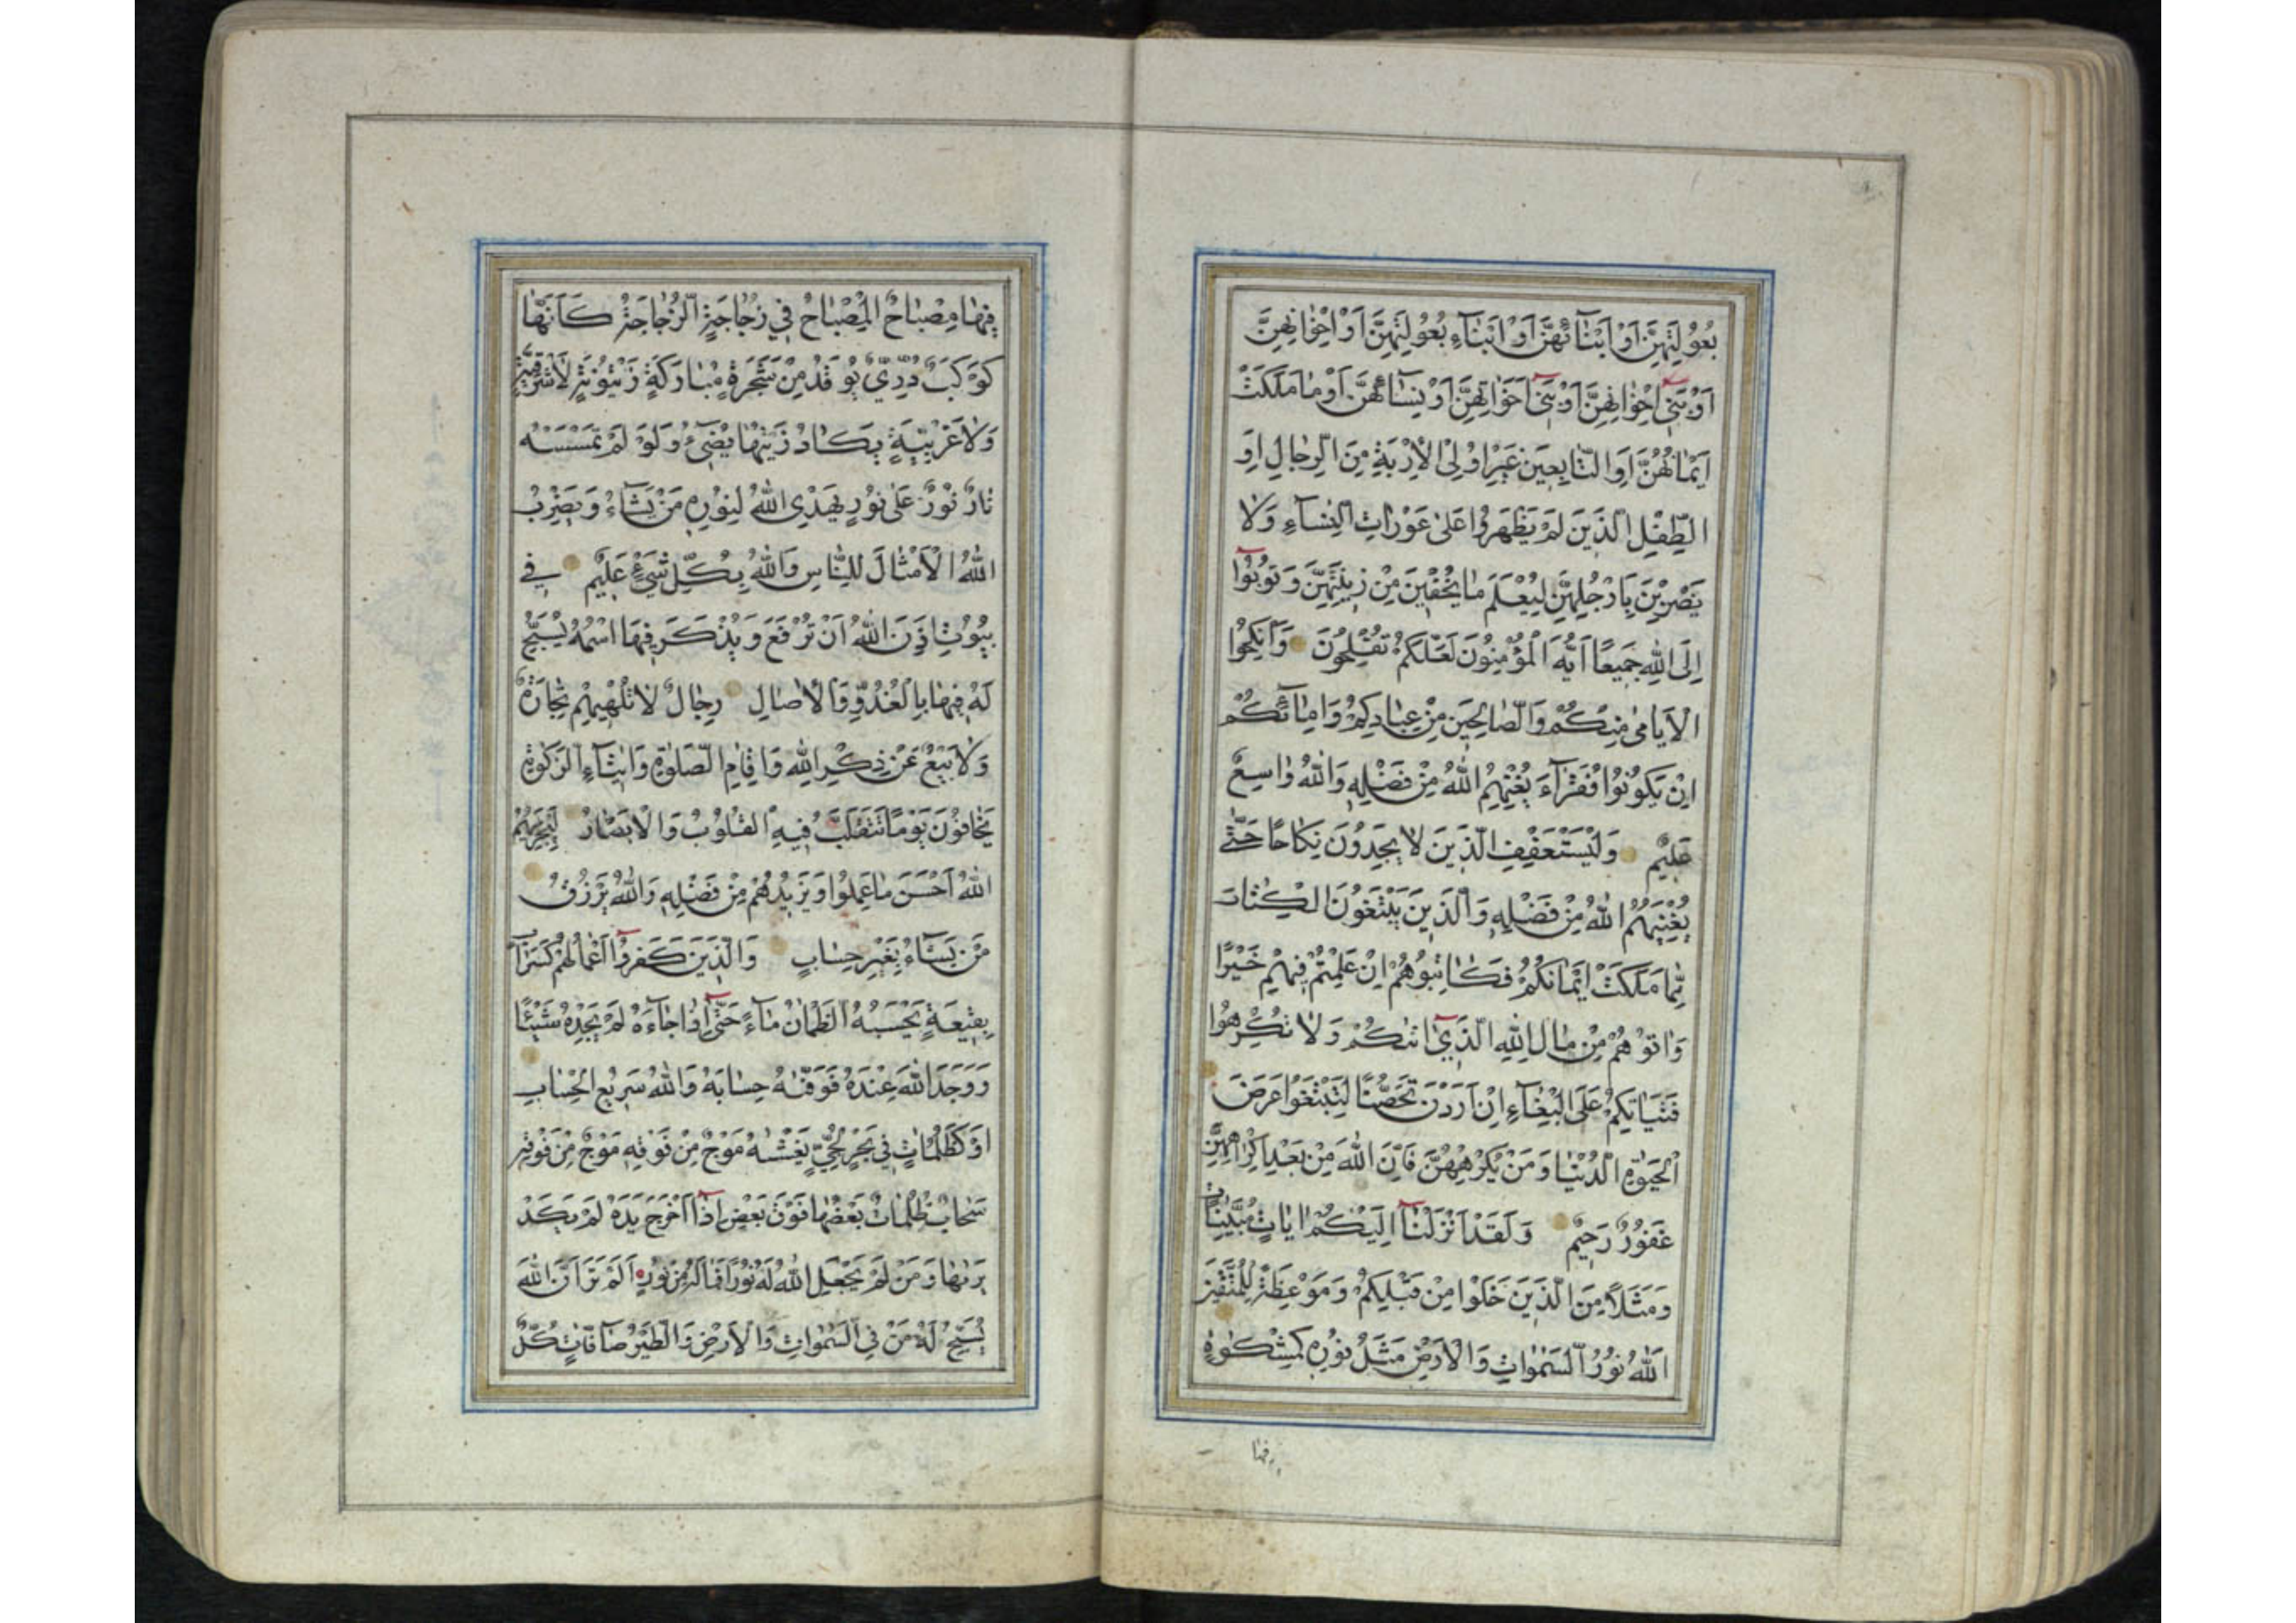 بُعُولَتِهِنَّ اَوْ اَبْنَآئِهِنَّ اَوْ اَبْنَآءِ بُعُولَتِهِنَّ اَوْ اِخْوٰانِهِنَّ
اَوْ بَنِىٓ اِخْوٰانِهِنَّ اَوْ بَنِىٓ اَخَوٰاتِهِنَّ اَوْ نِسٰٓائِهِنَّ اَوْ مٰا مَلَكَتْ
اَيْمٰانُهُنَّ اَوِ التّٰابِعِينَ غَيْرِ اُولِى الْاِرْبَةِ مِنَ الرِّجٰالِ اَوِ
الطِّفْلِ الَّذِينَ لَمْ يَظْهَرُوا عَلىٰ عَوْرٰاتِ النِّسٰآءِ وَلاٰ
يَضْرِبْنَ بِاَرْجُلِهِنَّ لِيُعْلَمَ مٰا يُخْفِينَ مِنْ زِينَتِهِنَّ وَتُوبُوٓا
اِلَى اللّٰهِ جَمِيعًا اَيُّهَ الْمُؤْمِنُونَ لَعَلَّكُمْ تُفْلِحُونَ وَاَنْكِحُوا
الْاَيٰامىٰ مِنْكُمْ وَالصّٰالِحِينَ مِنْ عِبٰادِكُمْ وَاِمٰآئِكُمْ
اِنْ يَكُونُوا فُقَرٰآءَ يُغْنِهِمُ اللّٰهُ مِنْ فَضْلِهِ وَاللّٰهُ وٰاسِعٌ
عَلِيمٌ وَلْيَسْتَعْفِفِ الَّذِينَ لاٰ يَجِدُونَ نِكٰاحًا حَتّٰى
يُغْنِيَهُمُ اللّٰهُ مِنْ فَضْلِهِ وَالَّذِينَ يَبْتَغُونَ الْكِتٰابَ
مِمّٰا مَلَكَتْ اَيْمٰانُكُمْ فَكٰاتِبُوهُمْ اِنْ عَلِمْتُمْ فِيهِمْ خَيْرًا
وَاٰتُوهُمْ مِنْ مٰالِ اللّٰهِ الَّذِىٓ اٰتٰكُمْ وَلاٰ تُكْرِهُوا
فَتَيٰاتِكُمْ عَلَى الْبِغٰآءِ اِنْ اَرَدْنَ تَحَصُّنًا لِتَبْتَغُوا عَرَضَ
الْحَيٰوةِ الدُّنْيٰا وَمَنْ يُكْرِهْهُنَّ فَاِنَّ اللّٰهَ مِنْ بَعْدِ اِكْرٰاهِهِنَّ
غَفُورٌ رَحِيمٌ وَلَقَدْ اَنْزَلْنٰآ اِلَيْكُمْ اٰيٰاتٍ مُبَيِّنٰاتٍ
وَمَثَلاً مِنَ الَّذِينَ خَلَوْا مِنْ قَبْلِكُمْ وَمَوْعِظَةً لِلْمُتَّقِينَ
اَللّٰهُ نُورُ السَّمٰوٰاتِ وَالْاَرْضِ مَثَلُ نُورِهِ كَمِشْكٰوةٍ
فيها
فِيهٰا مِصْبٰاحٌ الْمِصْبٰاحُ فِي زُجٰاجَةٍ الزُّجٰاجَةُ كَاَنَّهٰا
كَوْكَبٌ دُرِّيٌّ يُوقَدُ مِنْ شَجَرَةٍ مُبٰارَكَةٍ زَيْتُونَةٍ لاٰ شَرْقِيَّةٍ
وَلاٰ غَرْبِيَّةٍ يَكٰادُ زَيْتُهٰا يُضِىٓءُ وَلَوْ لَمْ تَمْسَسْهُ
نٰارٌ نُورٌ عَلىٰ نُورٍ يَهْدِى اللّٰهُ لِنُورِهِ مَنْ يَشٰآءُ وَيَضْرِبُ
اللّٰهُ الْاَمْثٰالَ لِلنّٰاسِ وَاللّٰهُ بِكُلِّ شَىْءٍ عَلِيمٌ فِي
بُيُوتٍ اَذِنَ اللّٰهُ اَنْ تُرْفَعَ وَيُذْكَرَ فِيهَا اسْمُهُ يُسَبِّحُ
لَهُ فِيهٰا بِالْغُدُوِّ وَالْاٰصٰالِ رِجٰالٌ لاٰ تُلْهِيهِمْ تِجٰارَةٌ
وَلاٰ بَيْعٌ عَنْ ذِكْرِ اللّٰهِ وَاِقٰامِ الصَّلٰوةِ وَاِيتٰآءِ الزَّكٰوةِ
يَخٰافُونَ يَوْمًا تَتَقَلَّبُ فِيهِ الْقُلُوبُ وَالْاَبْصٰارُ لِيَجْزِيَهُمُ
اللّٰهُ اَحْسَنَ مٰا عَمِلُوا وَيَزِيدُهُمْ مِنْ فَضْلِهِ وَاللّٰهُ يَرْزُقُ
مَنْ يَشٰآءُ بِغَيْرِ حِسٰابٍ وَالَّذِينَ كَفَرُوٓا اَعْمٰالُهُمْ كَسَرٰابٍ
بِقِيعَةٍ يَحْسَبُهُ الظَّمْاٰنُ مٰآءً حَتّٰىٓ اِذٰا جٰآءَهُ لَمْ يَجِدْهُ شَيْئًا
وَوَجَدَ اللّٰهَ عِنْدَهُ فَوَفّٰهُ حِسٰابَهُ وَاللّٰهُ سَرِيعُ الْحِسٰابِ
اَوْ كَظُلُمٰاتٍ فِي بَحْرٍ لُجِّيٍّ يَغْشٰهُ مَوْجٌ مِنْ فَوْقِهِ مَوْجٌ مِنْ فَوْقِهِ
سَحٰابٌ ظُلُمٰاتٌ بَعْضُهٰا فَوْقَ بَعْضٍ اِذٰآ اَخْرَجَ يَدَهُ لَمْ يَكَدْ
يَرٰيهٰا وَمَنْ لَمْ يَجْعَلِ اللّٰهُ لَهُ نُورًا فَمٰا لَهُ مِنْ نُورٍ اَلَمْ تَرَ اَنَّ اللّٰهَ
يُسَبِّحُ لَهُ مَنْ فِي السَّمٰوٰاتِ وَالْاَرْضِ وَالطَّيْرُ صٰآفّٰاتٍ كُلٌّ